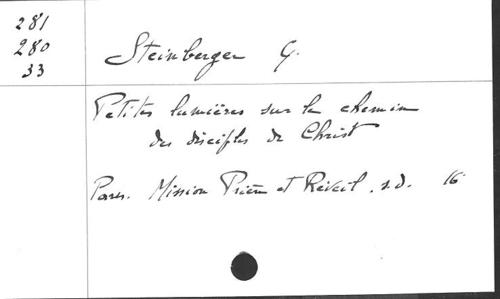 281
280
33
Steinberger G.
Petites lumières sur le chemin
des disciples de Christ
Mission Prière et Réveil, s.d. 16